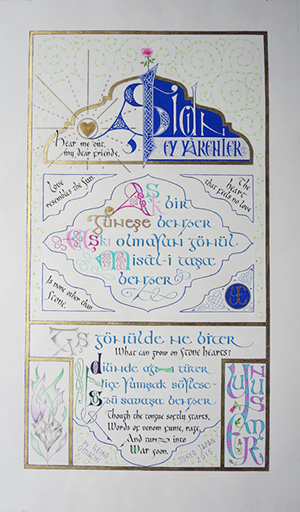 İşidin
EY YÂRENLER
Hear me out,
my dear friends,
Love
resembles the sun
The
heart
that feels no love
Aşk bir
güneşe benzer
Aşkı olmayan gönül
Misâl-i taşa
benzer
Is none other than
stone.
Taş gönülde ne biter
What can grow on stone hearts?
dilinde ağu tüter
nice yumşak söylese
sözü savaşa benzer
Though the tongue softly starts,
Words of venom fume, rage,
And turn into
War soon.
YUNUS
EMRE
TOKYO JAPAN